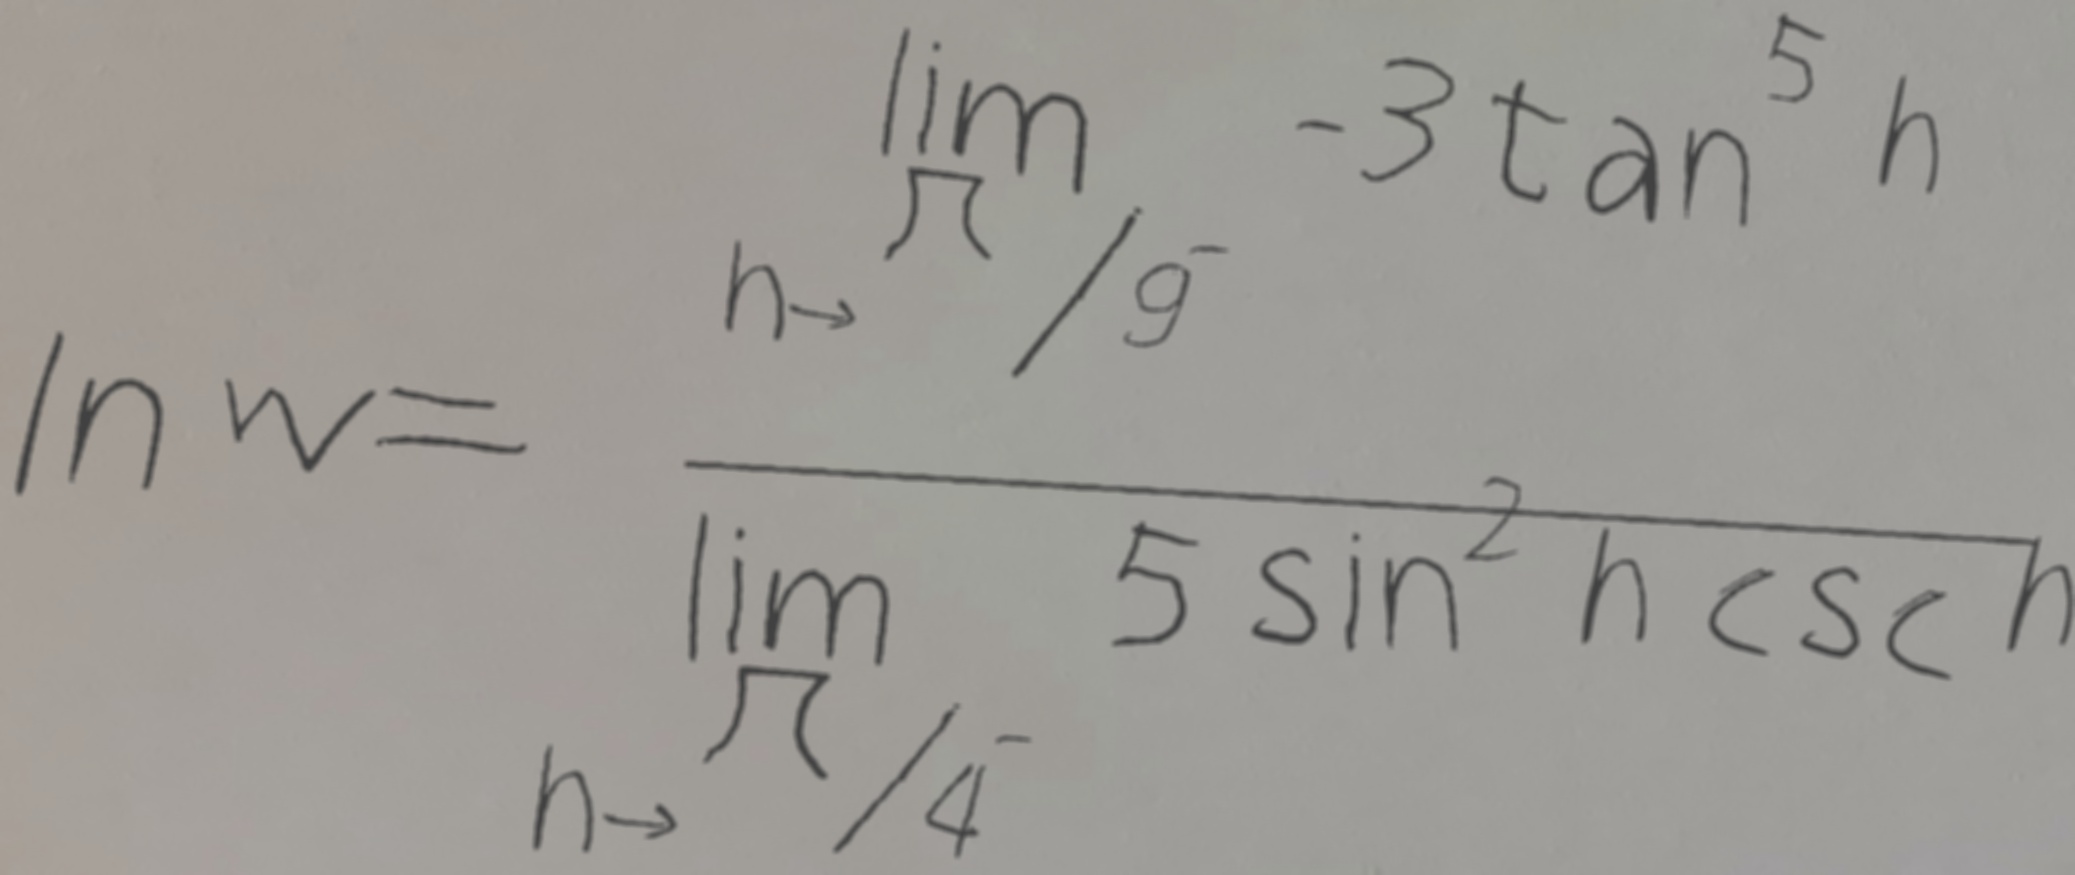 ln w = \frac{\lim_{h \to \pi/9^-} -3 \tan^5 h}{\lim_{h \to \pi/4^-} 5 \sin^2 h \csc h}